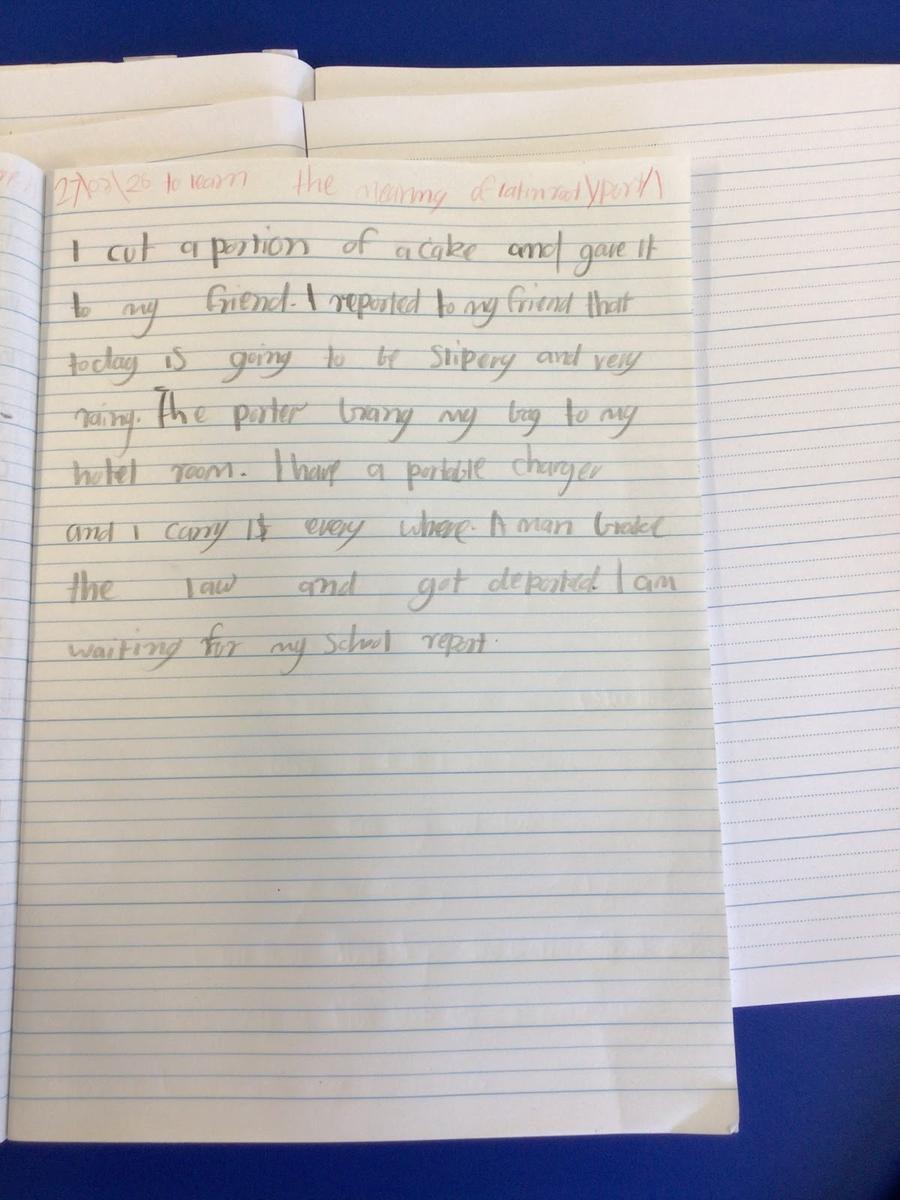 27\03\26 to learn the mearing of latin root \port/\
I cut a portion of a cake and gave it
to my friend. I reported to my friend that
today is going to be slipery and very
rainy. The porter brang my bag to my
hotel room. I have a portable charger
and i carry it every where. A man brake
the law and got deported. I am
waiting for my school report.